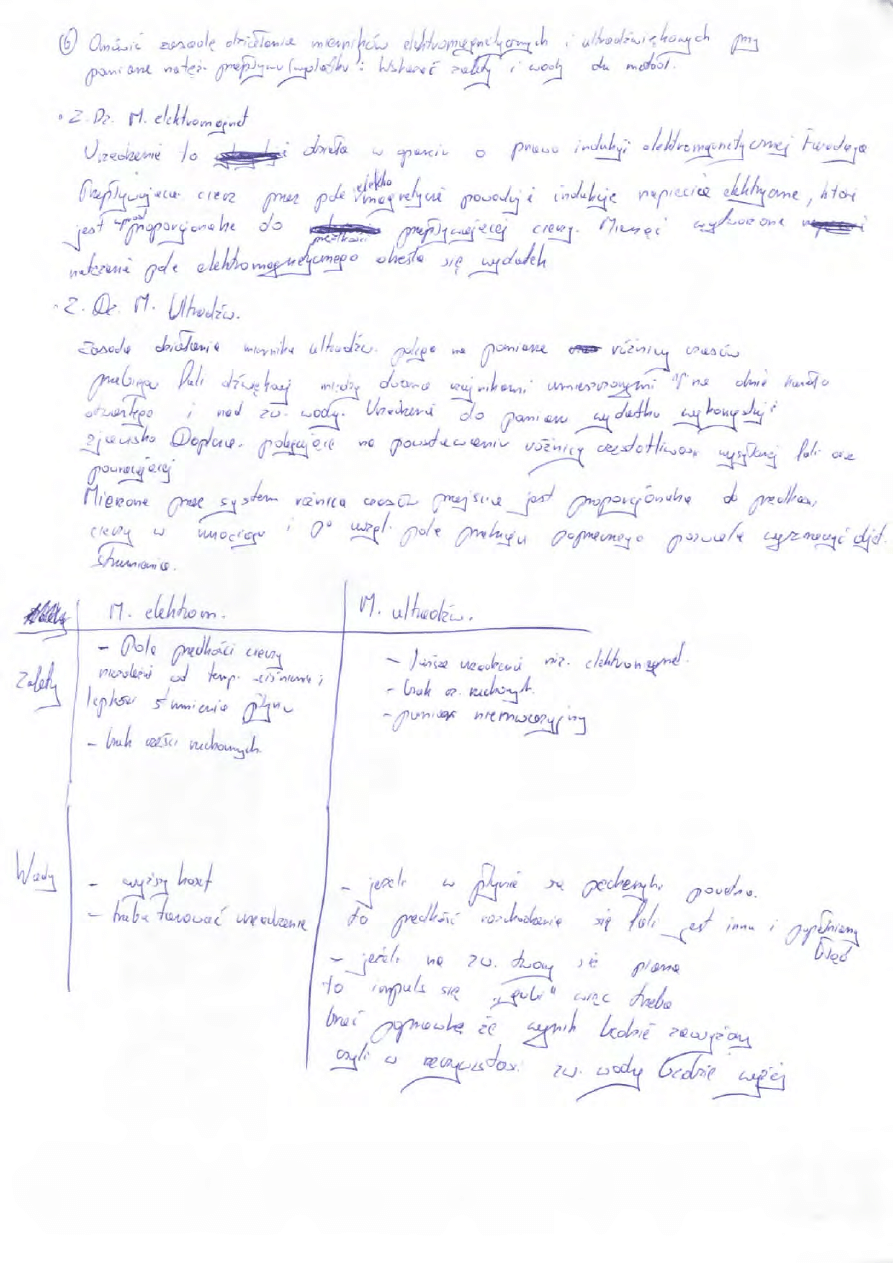 ⑥ Omówić zasadę działania mierników elektromagnetycznych i ultradźwiękowych przy
pomiarze natęż. przepływu (wydatku). Wskazać zalety i wady du metod.
• Z. Dz. M. elektromagnet
Urządzenie to działa w oparciu o prawo indukcji elektromagnetycznej Faradaya
Przepływająca ciecz przez pole elektro magnetyczne powoduje indukuje napięcie elektryczne, które
jest proporcjonalne do prędkości przepływającej cieczy. Mierząć wytworzone
natężenie pola elektromagnetycznego określa się wydatek
• Z. Dz. M. Ultradźw.
Zasada działania miernika ultradźw. polega na pomiarze różnicy czasów
przebiegu fali dźwiękowej między dwoma czujnikami umieszczonymi na dnie kanału
otwartego i nad zw. wody. Urządzenia do pomiaru wydatku wykorzystują
zjawisko Dopplera. polegające na powstawaniu różnicy częstotliwości wysyłanej fali oraz
powracającej
Mierzona przez system różnica czasów przejścia jest proporcjonalna do prędkości
cieczy w rurociągu i po uwzgl. pola przekroju poprzecznego pozwala wyznaczyć objęt.
strumienia.
M. elektrom. M. ultradźw.
Zalety
- Pola prędkości cieczy
niezależni od temp. ciśnienia i
lepkości strumienia płynu
- brak części ruchomych
- tańsze urządzenia niż. elektromagnet.
- brak cz. ruchomych.
- pomiar nieinwazyjny
Wady
- wyższy koszt
- trzeba tarować urządzenie
- jeżeli w płynie są pęcherzyki powietrza.
to prędkość rozchodzenia się fali jest inna i popełniamy
błąd
- jeżeli na zw. tworzy się piana
to impuls się „gubi" więc trzeba
brać poprawkę że wynik będzie zawyżony
czyli w rzeczywistości zw. wody będzie wyżej